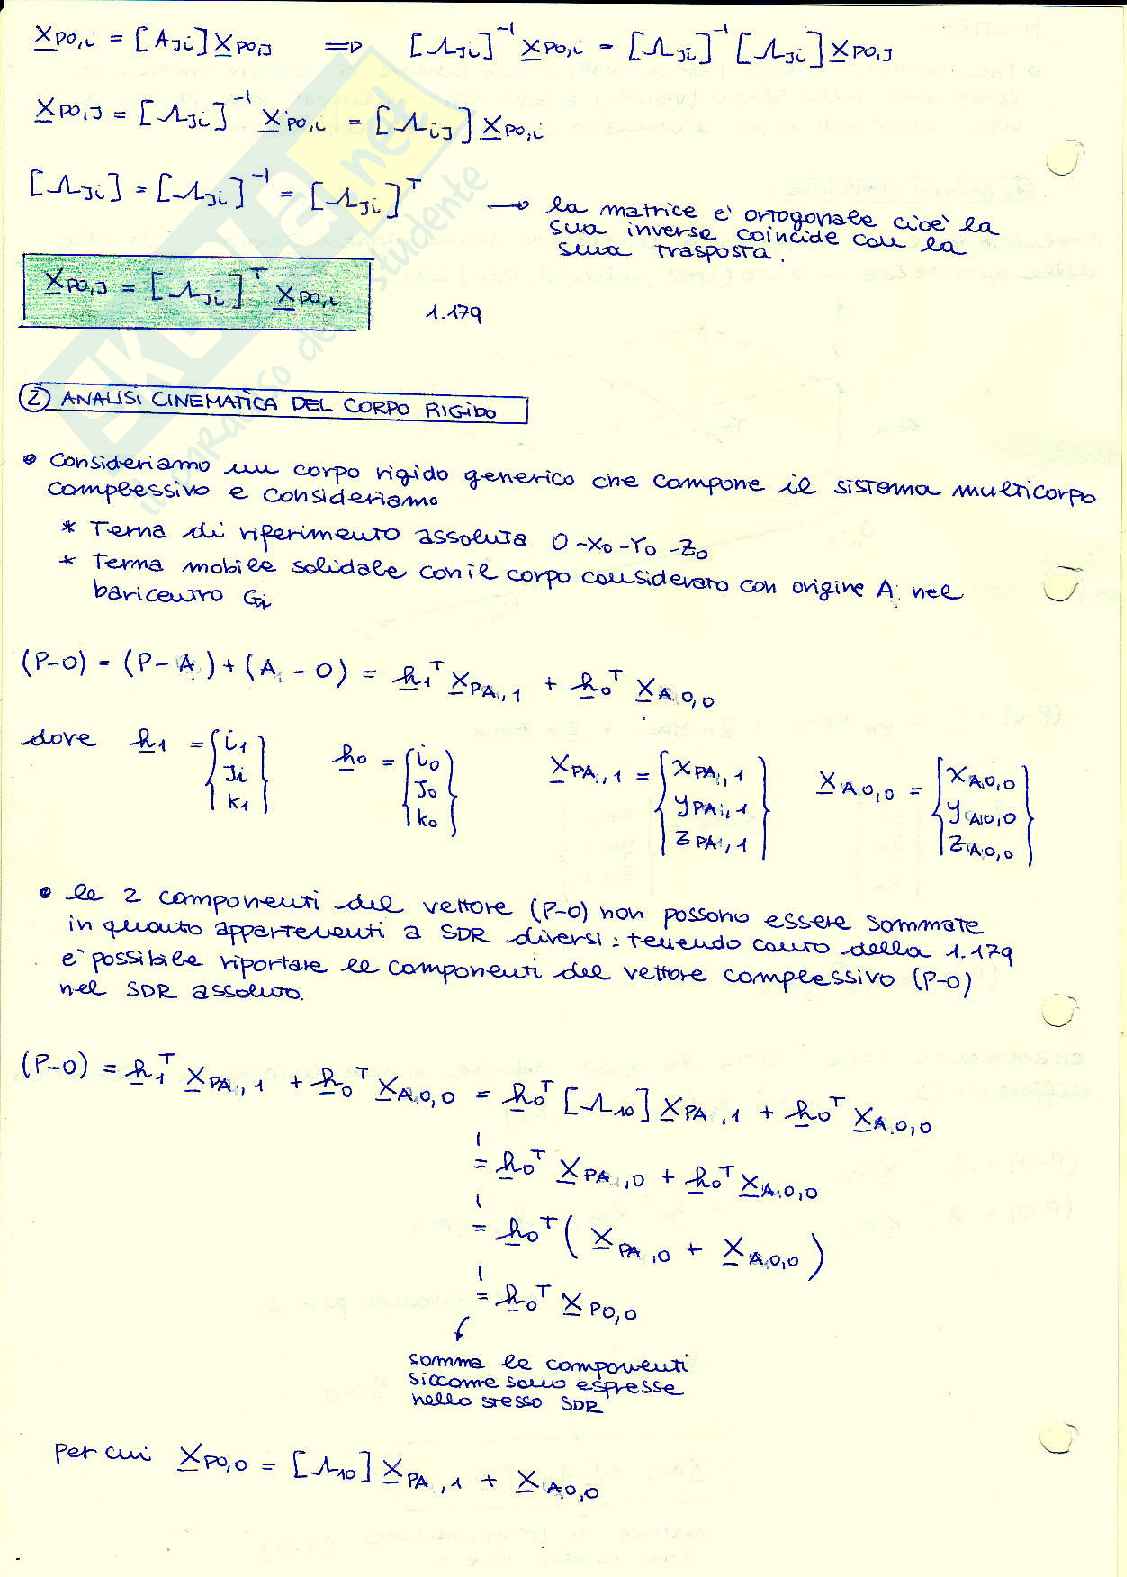 X̲PO,i = [ΛJi] X̲PO,J ⇒ [ΛJi]⁻¹ X̲PO,i = [ΛJi]⁻¹ [ΛJi] X̲PO,J
X̲PO,J = [ΛJi]⁻¹ X̲PO,i = [ΛiJ] X̲PO,i
[ΛJi] = [ΛJi]⁻¹ = [ΛJi]ᵀ → la matrice è ortogonale cioè la
sua inverse coincide con la
sua trasposta.
X̲PO,J = [ΛJi]ᵀ X̲PO,i 1.179
② ANALISI CINEMATICA DEL CORPO RIGIDO
• Consideriamo un corpo rigido generico che compone il sistema multicorpo
complessivo e consideriamo
* Terna di riferimento assoluta O-X₀-Y₀-Z₀
* Terna mobile solidale con il corpo considerato con origine A nel
baricentro Gi
(P-O) = (P-A) + (A-O) = h̲₁ᵀ X̲PA,1 + h̲₀ᵀ X̲AO,0
dove h̲₁ = {i₁ h̲₀ = {i₀ X̲PA,1 = {XPA,1 X̲AO,0 = {XAO,0
Ji J₀ yPA,1 yAO,0
k₁} k₀} ZPA,1} ZAO,0}
• le 2 componenti del vettore (P-O) non possono essere sommate
in quanto appartenenti a SDR diversi: tenendo conto della 1.179
è possibile riportare le componenti del vettore complessivo (P-O)
nel SDR assoluto.
(P-O) = h̲₁ᵀ X̲PA,1 + h̲₀ᵀ X̲AO,0 = h̲₀ᵀ [Λ₁₀] X̲PA,1 + h̲₀ᵀ X̲AO,0
= h̲₀ᵀ X̲PA,0 + h̲₀ᵀ X̲AO,0
= h̲₀ᵀ ( X̲PA,0 + X̲AO,0 )
= h̲₀ᵀ X̲PO,0
somma le componenti
siccome sono espresse
nello stesso SDR
per cui X̲PO,0 = [Λ₁₀] X̲PA,1 + X̲AO,0